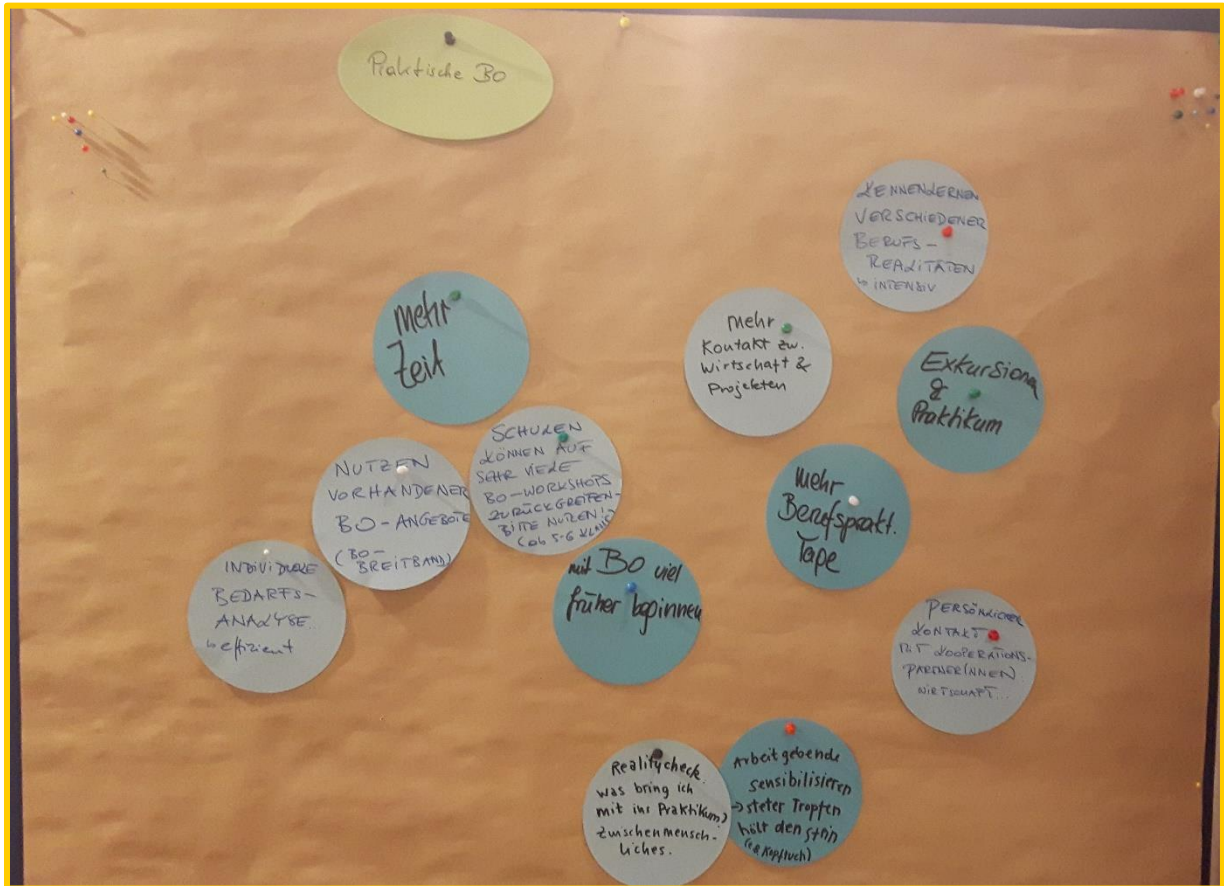 Praktische BO
KENNENLERNEN
VERSCHIEDENER
BERUFS-
REALITÄTEN
↳ INTENSIV
mehr
Zeit
mehr
Kontakt zw.
Wirtschaft &
Projekten
Exkursionen
&
Praktikum
SCHULEN
KÖNNEN AUF
SEHR VIELE
BO-WORKSHOPS
ZURÜCKGREIFEN-
BITTE NUTZEN!
(ab 5-6 KLASSE)
NUTZEN
VORHANDENER
BO-ANGEBOTE
(BO-
BREITBAND)
mehr
Berufsprakt.
Tage
INDIVIDUELLE
BEDARFS-
ANALYSE
↳ effizient
mit BO viel
früher beginnen
PERSÖNLICHER
KONTAKT
MIT KOOPERATIONS-
PARTNERINNEN
WIRTSCHAFT...
Realitycheck.
was bring ich
mit ins Praktikum?
Zwischenmensch-
liches.
Arbeitgebende
sensibilisieren
→ steter Tropfen
hölt den Stein
(z.B. Kopftuch)